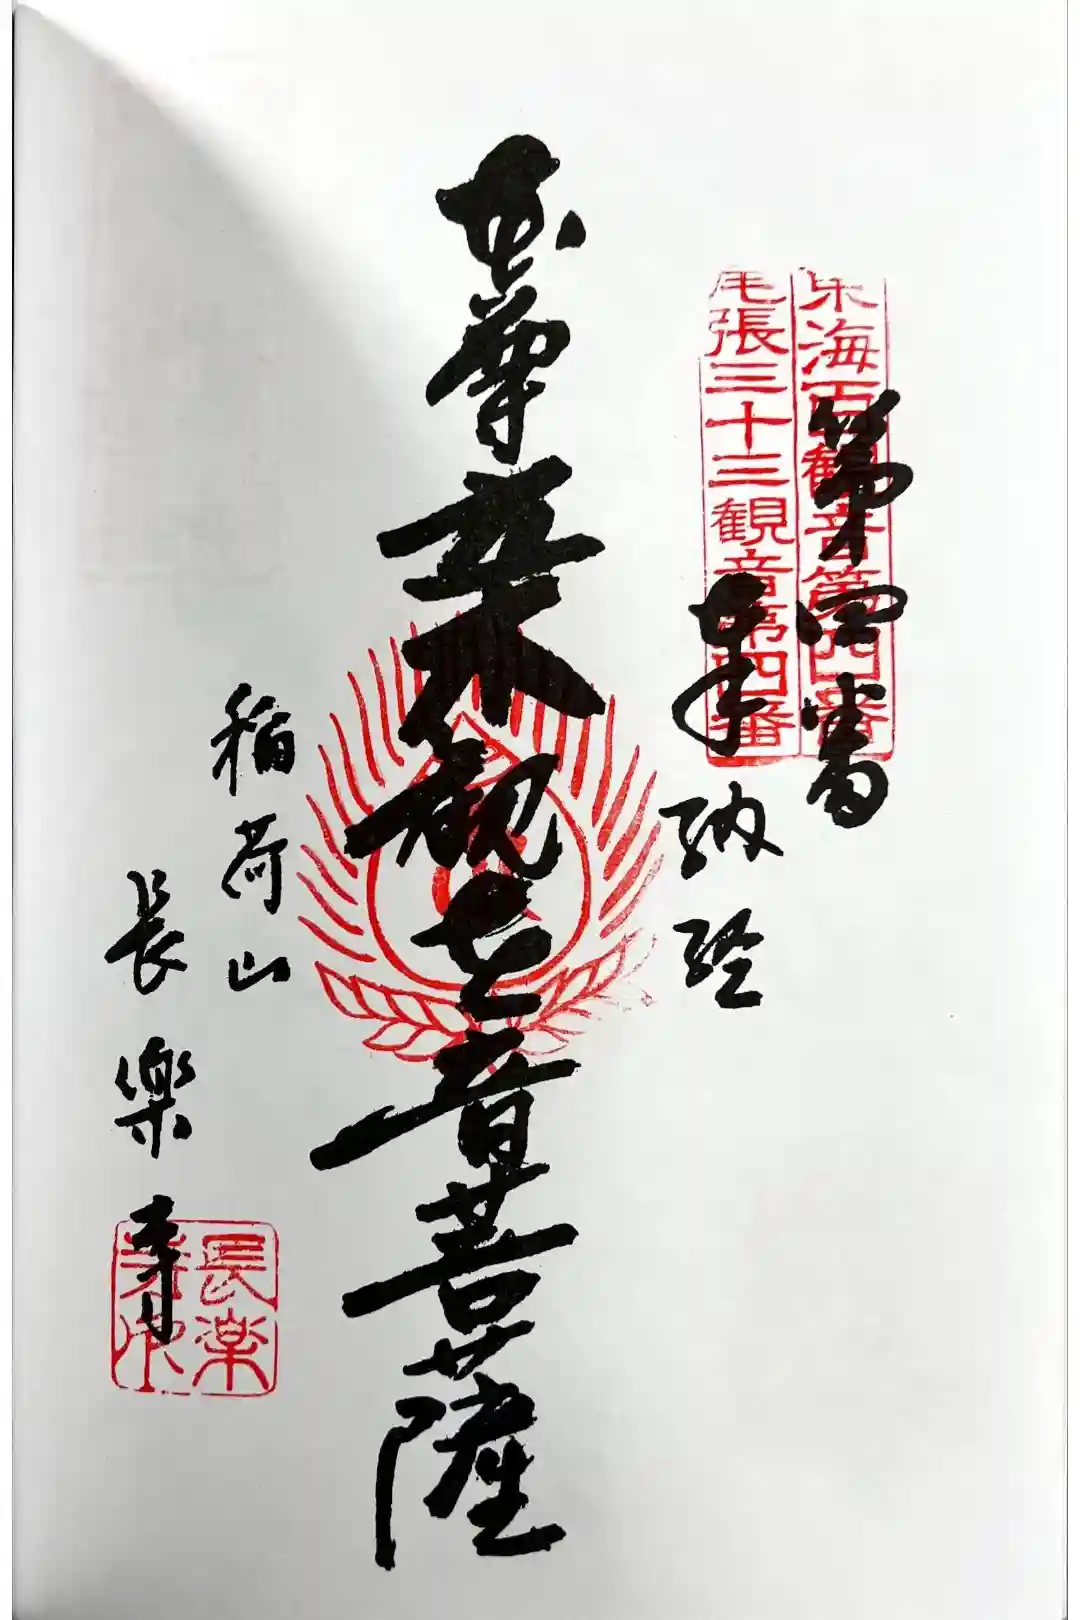 東海百観音第四番
尾張三十三観音第四番
第四番
奉納経
観世音菩薩
稲荷山
長樂寺
長楽
寺印